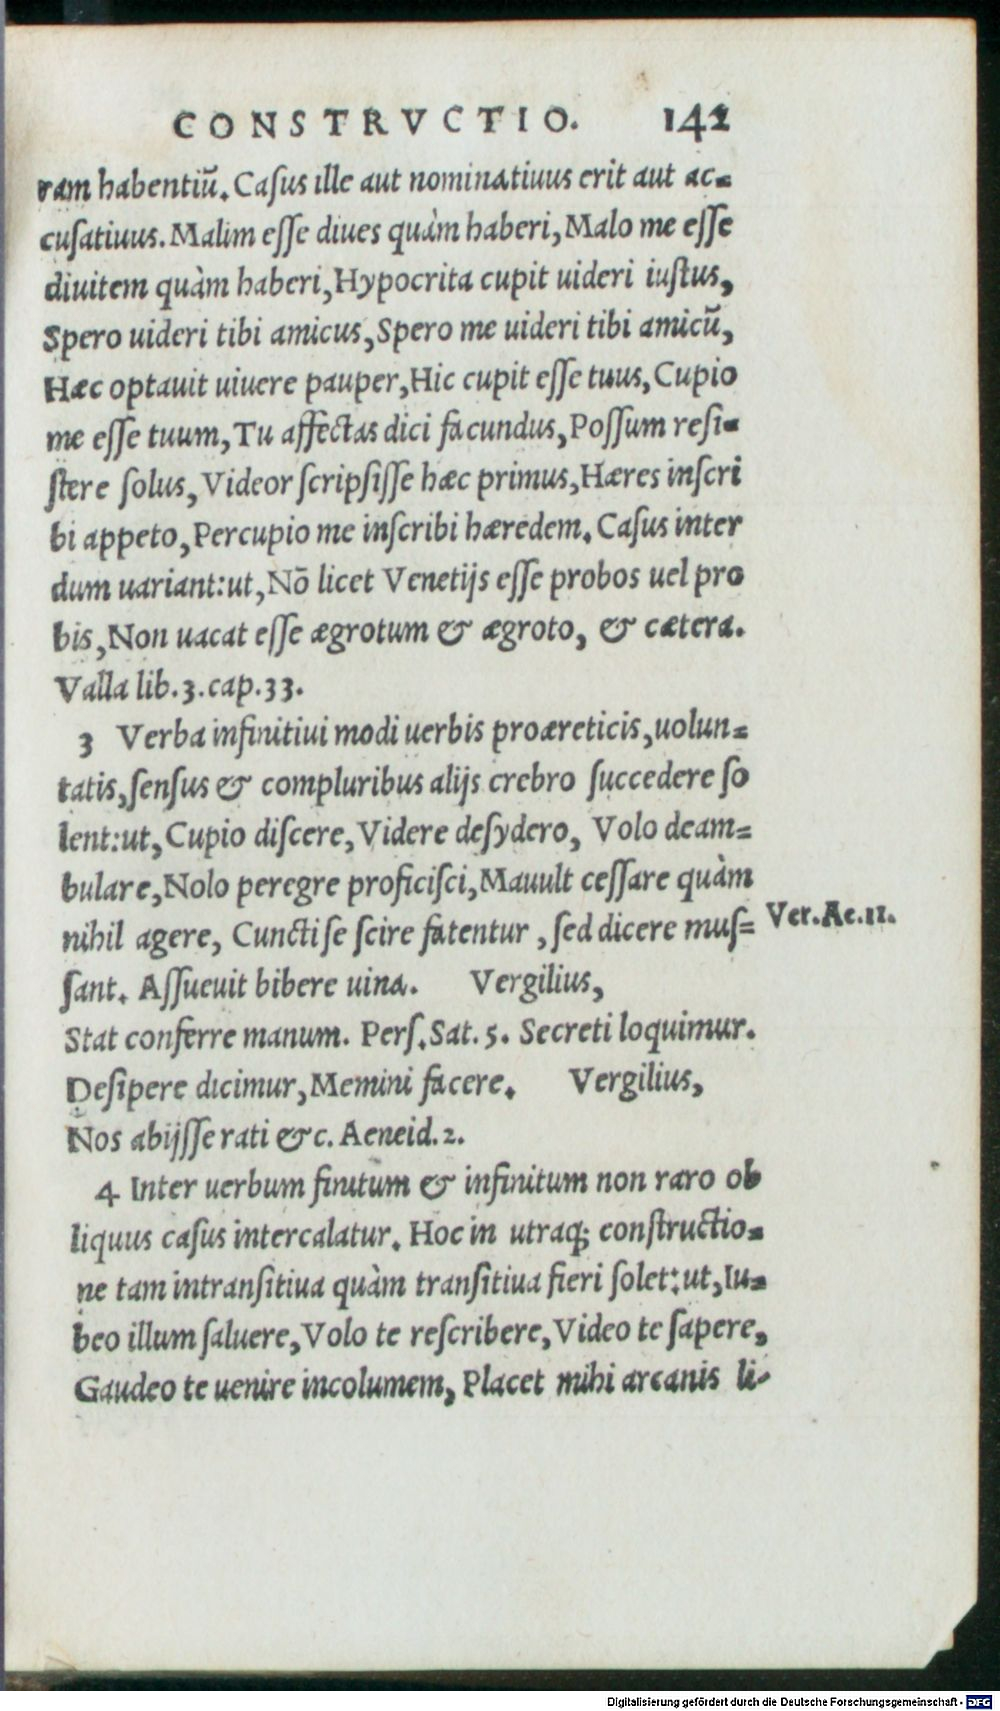 CONSTRVCTIO. 142
ram habentiũ. Caſus ille aut nominatiuus erit aut ac-
cuſatiuus. Malim eſſe diues quàm haberi, Malo me eſſe
diuitem quàm haberi, Hypocrita cupit uideri iuſtus,
Spero uideri tibi amicus, Spero me uideri tibi amicũ,
Hæc optauit uiuere pauper, Hic cupit eſſe tuus, Cupio
me eſſe tuum, Tu affectas dici facundus, Poſſum reſi-
ſtere ſolus, Videor ſcripſiſſe hæc primus, Hæres inſcri
bi appeto, Percupio me inſcribi hæredem. Caſus inter
dum uariant: ut, Nõ licet Venetijs eſſe probos uel pro
bis, Non uacat eſſe ægrotum & ægroto, & cætera.
Valla lib. 3. cap. 33.
3 Verba infinitiui modi uerbis proæreticis, uolun-
tatis, ſenſus & compluribus alijs crebro ſuccedere ſo
lent: ut, Cupio diſcere, Videre deſydero, Volo deam-
bulare, Nolo peregre proficiſci, Mauult ceſſare quàm
nihil agere, Cuncti ſe ſcire fatentur, ſed dicere muſ- Ver. Ae. 11.
ſant. Aſſueuit bibere uina. Vergilius,
Stat conferre manum. Perſ. Sat. 5. Secreti loquimur.
Deſipere dicimur, Memini facere. Vergilius,
Nos abijſſe rati &c. Aeneid. 2.
4 Inter uerbum finitum & infinitum non raro ob
liquus caſus intercalatur. Hoc in utraq; conſtructio-
ne tam intranſitiua quàm tranſitiua fieri ſolet: ut, Iu-
beo illum ſaluere, Volo te reſcribere, Video te ſapere,
Gaudeo te uenire incolumem, Placet mihi arcanis li-
Digitalisierung gefördert durch die Deutsche Forschungsgemeinschaft - DFG